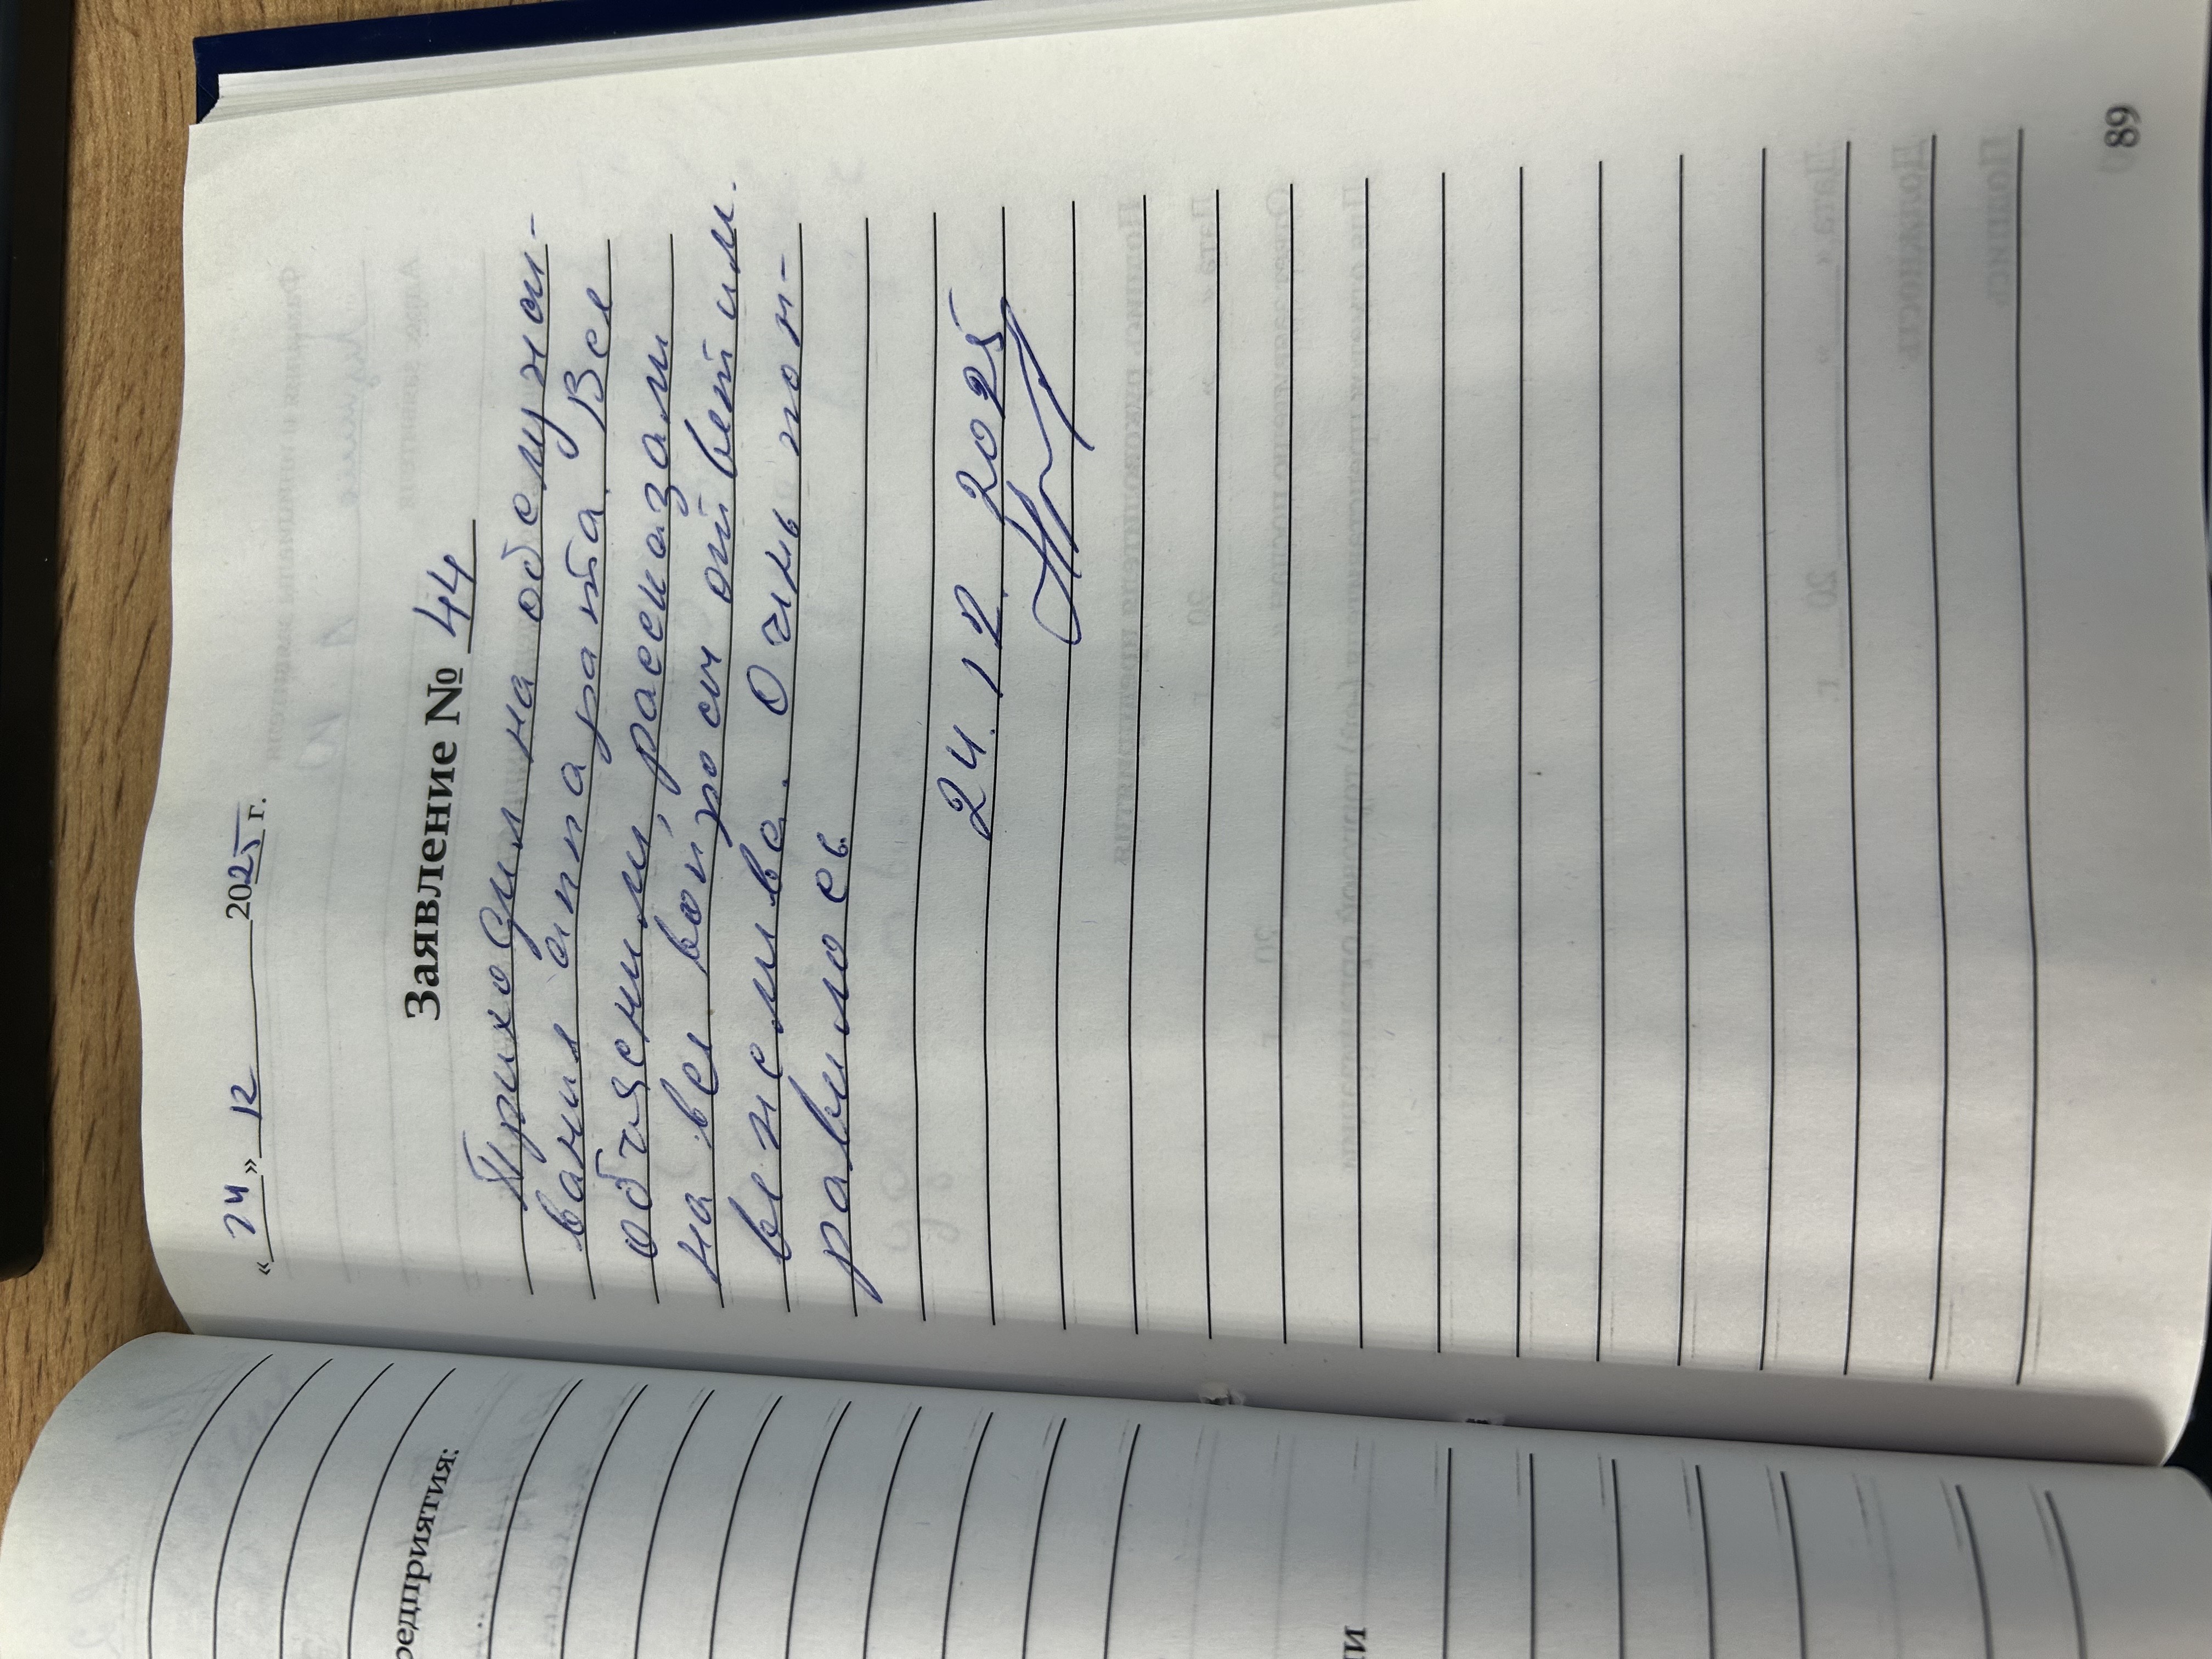 «24» 12 2025 г.
Заявление № 44
Приходил на обслужи-
вания аппарата. Все
обьяснили, рассказали
на все вопросы ответили.
вежливо. Очень пон-
равилось.
24.12.2025
89
редприятия: